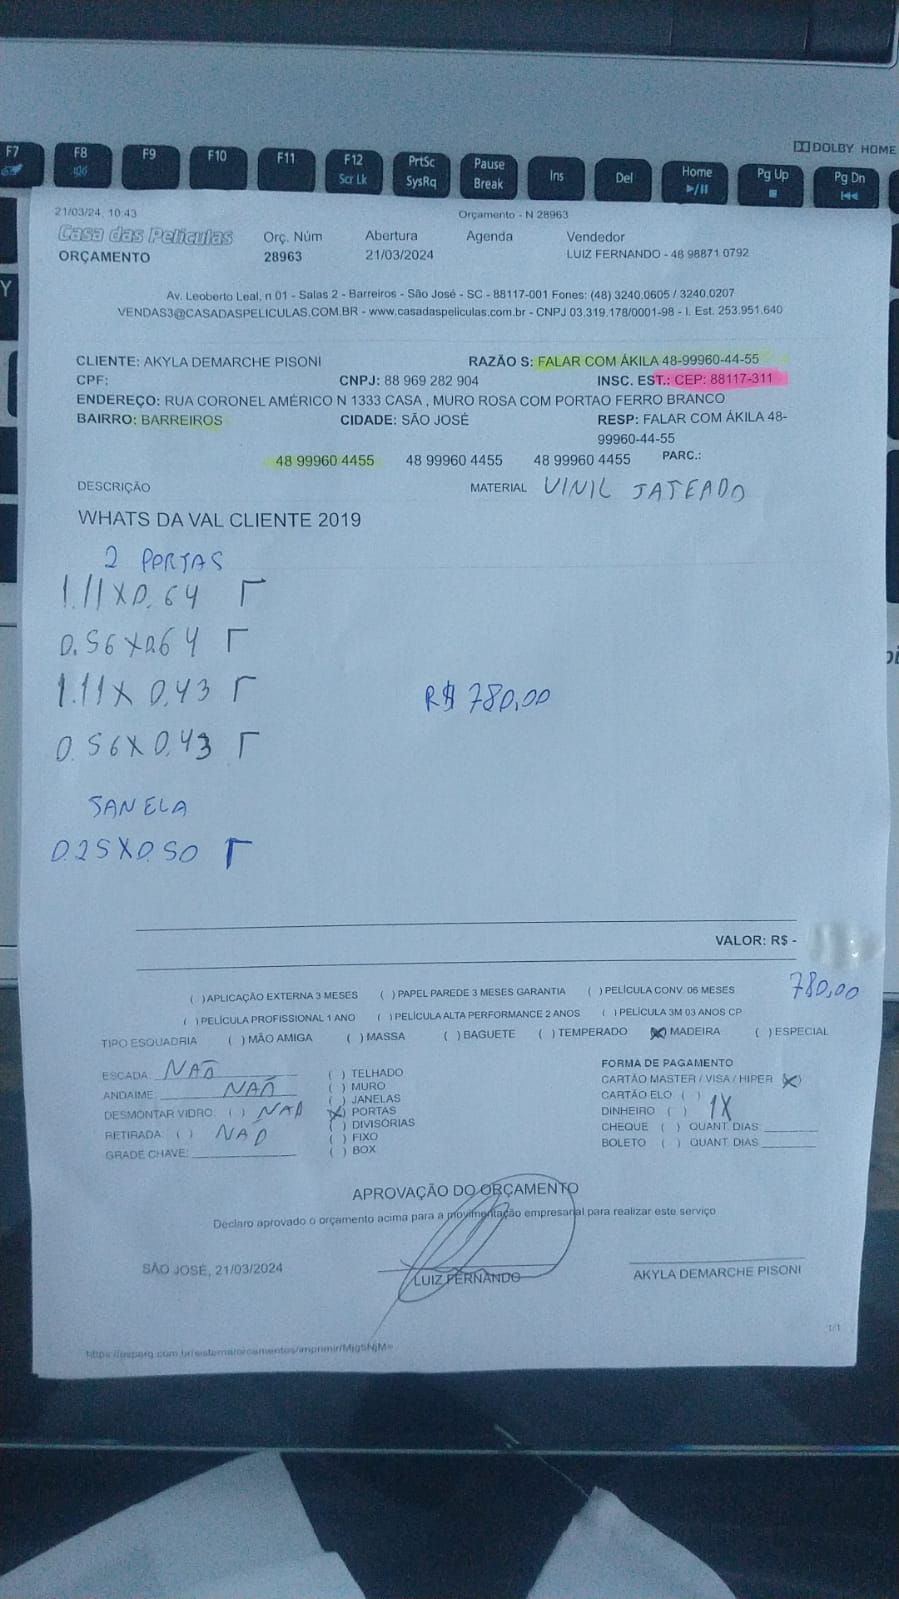 DOLBY HOME
F7 F8 F9 F10 F11 F12 Scr Lk PrtSc SysRq Pause Break Ins Del Home Pg Up Pg Dn
Y
21/03/24, 10:43 Orçamento - N 28963
Casa das Películas Orç. Núm Abertura Agenda Vendedor
ORÇAMENTO 28963 21/03/2024 LUIZ FERNANDO - 48 98871 0792
Av. Leoberto Leal, n 01 - Salas 2 - Barreiros - São José - SC - 88117-001 Fones: (48) 3240.0605 / 3240.0207
VENDAS3@CASADASPELICULAS.COM.BR - www.casadaspeliculas.com.br - CNPJ 03.319.178/0001-98 - I. Est. 253.951.640
CLIENTE: AKYLA DEMARCHE PISONI RAZÃO S: FALAR COM ÁKILA 48-99960-44-55
CPF: CNPJ: 88 969 282 904 INSC. EST.: CEP: 88117-311
ENDEREÇO: RUA CORONEL AMÉRICO N 1333 CASA , MURO ROSA COM PORTAO FERRO BRANCO
BAIRRO: BARREIROS CIDADE: SÃO JOSÉ RESP: FALAR COM ÁKILA 48-
99960-44-55
48 99960 4455 48 99960 4455 48 99960 4455 PARC.:
DESCRIÇÃO MATERIAL VINIL JATEADO
WHATS DA VAL CLIENTE 2019
2 PORTAS
1.11 X 0.64
0.56 X 0.64
1.11 X 0.43
R$ 780,00
0.56 X 0.43
JANELA
0.25 X 0.50
VALOR: R$ -
780,00
( )APLICAÇÃO EXTERNA 3 MESES ( ) PAPEL PAREDE 3 MESES GARANTIA ( ) PELÍCULA CONV. 06 MESES
( ) PELÍCULA PROFISSIONAL 1 ANO ( ) PELÍCULA ALTA PERFORMANCE 2 ANOS ( ) PELÍCULA 3M 03 ANOS CP
TIPO ESQUADRIA ( ) MÃO AMIGA ( ) MASSA ( ) BAGUETE ( ) TEMPERADO (X) MADEIRA ( ) ESPECIAL
ESCADA: NÃO
ANDAIME: NÃO
DESMONTAR VIDRO: ( ) NÃO
RETIRADA: ( ) NÃO
GRADE CHAVE:
( ) TELHADO
( ) MURO
( ) JANELAS
(X) PORTAS
( ) DIVISÓRIAS
( ) FIXO
( ) BOX
FORMA DE PAGAMENTO
CARTÃO MASTER / VISA / HIPER (X)
CARTÃO ELO ( )
DINHEIRO ( ) 1X
CHEQUE ( ) QUANT. DIAS:
BOLETO ( ) QUANT. DIAS
APROVAÇÃO DO ORÇAMENTO
Declaro aprovado o orçamento acima para a movimentação empresarial para realizar este serviço
SÃO JOSÉ, 21/03/2024 LUIZ FERNANDO AKYLA DEMARCHE PISONI
1/1